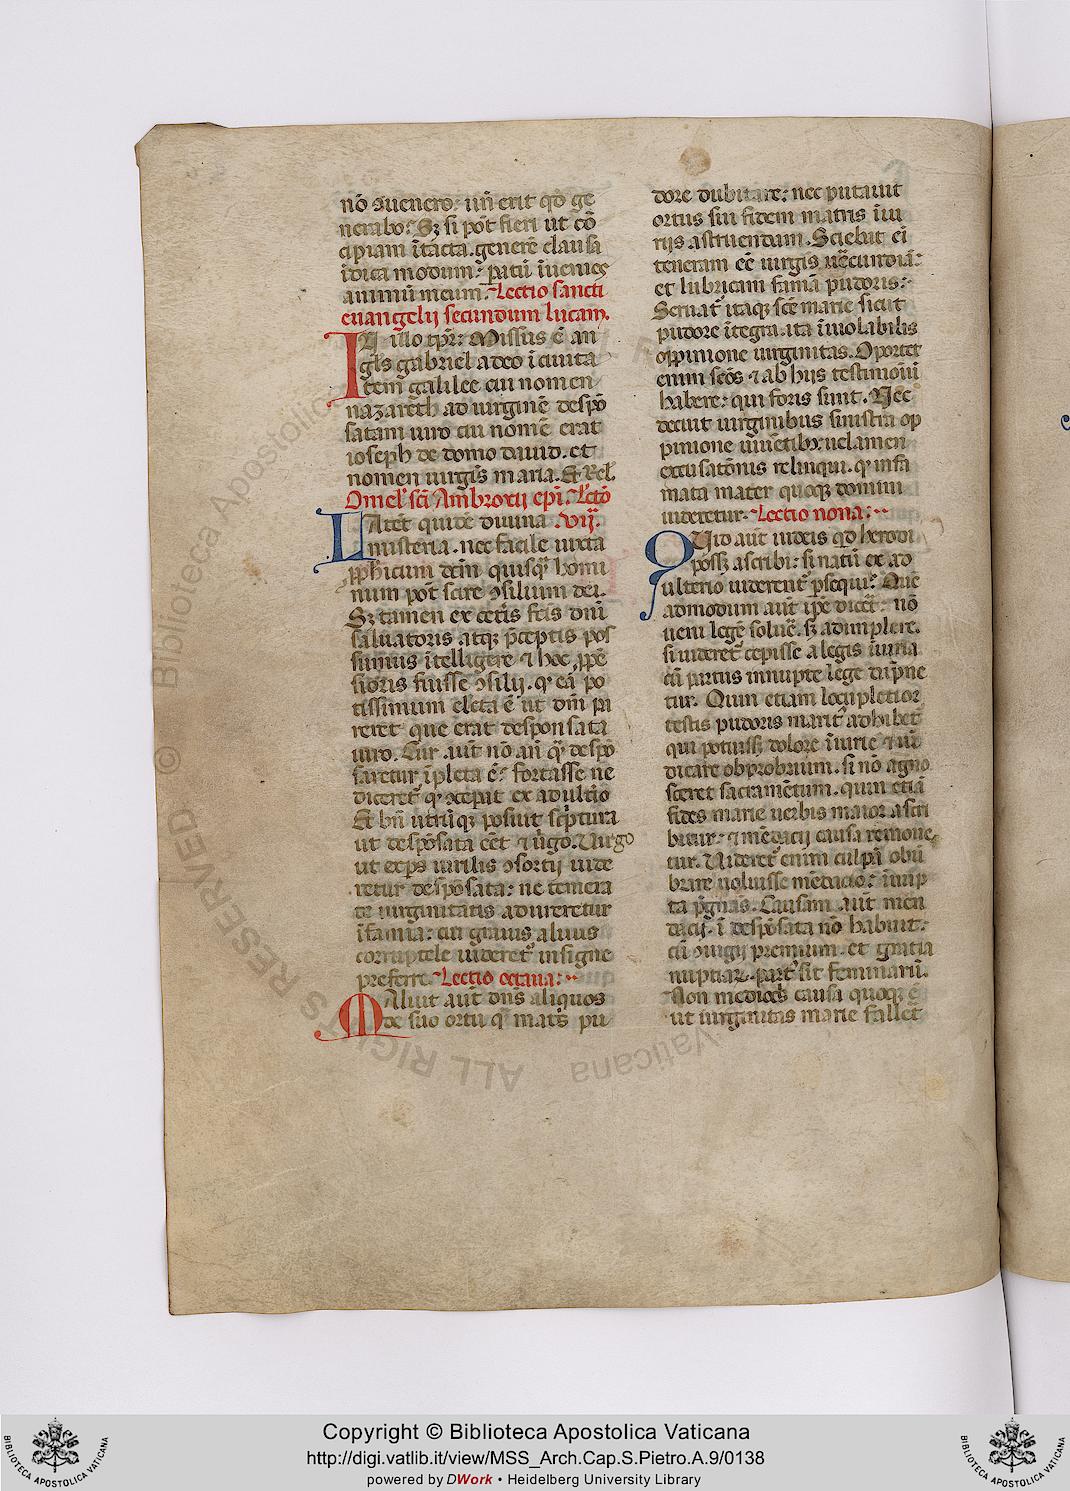 nō ꝯuenero: nī erit qd̄ ge
nerabo: Sꝫ si pōt fieri ut cō
cipiam ītacta. generē clausa
īdica modum: patū īuenies
animū meum. Lectio sancti
euangelij secundum lucam.
IN illo tp̄r: Missus ē an
gl̄s gabriel a deo ī ciuita
tem galilee cui nomen
nazareth ad uirginē despō
satam uiro cui nomē erat
ioseph de domo dauid. et
nomen uirgīs maria. Et Rel̄.
Omel̄ scī Ambrosij epī. Lcō
LAtēt quidē diuina .vij.
misteria. nec facile iuxta
ꝓphicum dcm̄ quisqꝫ homi
num pōt scire ꝯsilium dei.
Sꝫ tamen ex cetīs fc̄is dn̄i
saluatoris atqꝫ p̄ceptis pos
sumus ītelligere ⁊ hoc ꝓpē
sioris fuisse ꝯsilij. qꝛ ea po
tissimum electa ē ut dn̄m pa
reret que erat desponsata
uiro. Cur aut̄ nō an̄ qͣ despō
saretur īpleta ē: fortasse ne
diceret̄ qꝛ ꝯcepat ex adulterio
Et bn̄ utrūqꝫ posuit sc̄ptura
ut despōsata eēt ⁊ uͥgo. Virgo
ut exp̄s uirilis ꝯsortij uide
retur despōsata: ne temera
te uirginitatis adureretur
īfamia: cui grauis aluus
corruptele uideret̄ insigne
preferre. Lectio octaua:
MAluit aut̄ dn̄s aliquos
de suo ortu qͣ matͥs pu
dore dubitare: nec putauit
ortus sui fidem matris īiu
rijs astruendam. Sciebat ei
teneram eē uirgīs uecundiā:
et lubricam famā pudoris:
Seruat̄ itaqꝫ scē marie sicut
pudore ītegra. ita īuiolabilis
oppinione uirginitas. Oportet
enim scōs ⁊ ab hijs testimoniū
habere: qui foris sunt. Nec
decuit uirginibus sinistra op
pinione uiuētibꝫ: uelamen
excusatōnis relinqui. qꝛ infa
mata mater quoqꝫ domini
uideretur. Lectio nona:
QVid aut̄ iudeis qd̄ herodi
possꝫ ascribi: si natū ex ad
ulterio uiderent̄ ꝑsequi: Quē
admodum aut̄ ip̄e dicet̄: nō
ueni legē soluē. sꝫ adimplere.
si uideret̄ cepisse a legis īiuria
cū partus innupte lege dāpne
tur. Quin etiam locupletior
testis pudoris marit̄ adhibet̄
qui potuissꝫ dolore īiurie ⁊ uī
dicare obprobrium. si nō agno
sceret sacramētum. quin etiā
fides marie uerbis maior ascri
bitur: ⁊ mēdacij causa remoue
tur. Videret̄ enim culpā obū
brare uoluisse mēdacio: īnup
ta p̄gnās. Causam aut̄ men
dacij ī despōsata nō habuit:
cū ꝯiugij premium. et gratia
nuptiaꝝ. partꝰ sit feminarū.
Non mediocͥs causa quoqꝫ ē
ut uirginitas marie fallēt
Copyright © Biblioteca Apostolica Vaticana
http://digi.vatlib.it/view/MSS_Arch.Cap.S.Pietro.A.9/0138
powered by DWork • Heidelberg University Library